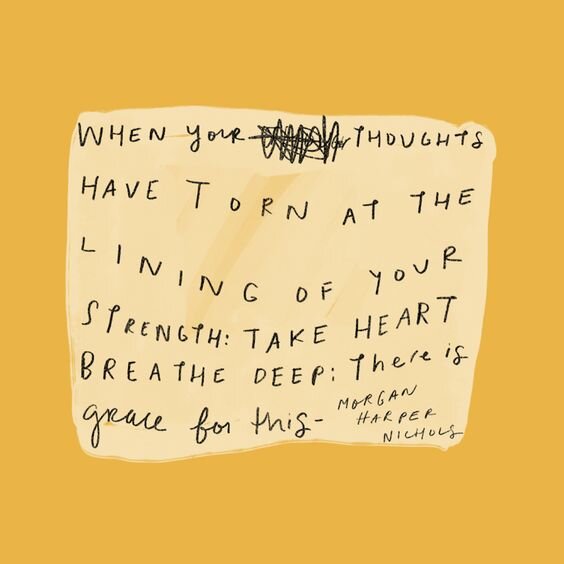 WHEN YOUR THOUGHTS
HAVE TORN AT THE
LINING OF YOUR
STRENGTH: TAKE HEART
BREATHE DEEP: There is
grace for this-
MORGAN
HARPER
NICHOLS